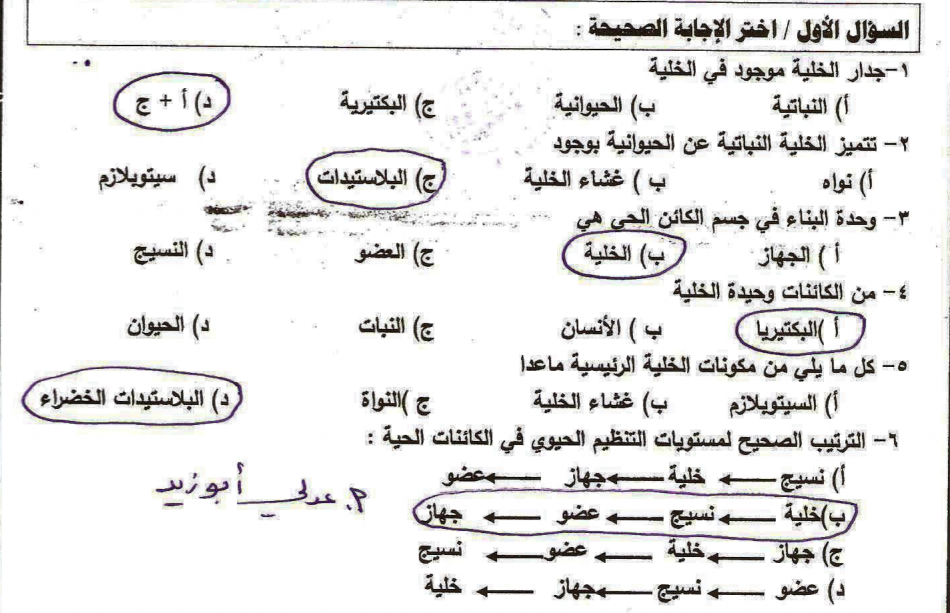 السؤال الأول / اختر الإجابة الصحيحة :
١-جدار الخلية موجود في الخلية
أ) النباتية ب) الحيوانية ج) البكتيرية د) أ + ج
٢- تتميز الخلية النباتية عن الحيوانية بوجود
أ) نواه ب ) غشاء الخلية ج) البلاستيدات د) سيتوبلازم
٣- وحدة البناء في جسم الكائن الحي هي
أ ) الجهاز ب) الخلية ج) العضو د) النسيج
٤- من الكائنات وحيدة الخلية
أ )البكتيريا ب ) الأنسان ج) النبات د) الحيوان
٥- كل ما يلي من مكونات الخلية الرئيسية ماعدا
أ) السيتوبلازم ب) غشاء الخلية ج )النواة د) البلاستيدات الخضراء
٦- الترتيب الصحيح لمستويات التنظيم الحيوي في الكائنات الحية :
أ) نسيج ← خلية ← جهاز ← عضو
م. عدلي أبوزيد
ب)خلية ← نسيج ← عضو ← جهاز
ج) جهاز ← خلية ← عضو ← نسيج
د) عضو ← نسيج ← جهاز ← خلية